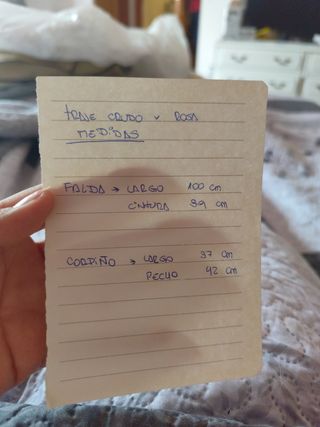 TRAJE CRUDO Y ROSA
MEDIDAS
FALDA → LARGO 100 cm
CINTURA 89 cm
CORPIÑO → LARGO 37 cm
PECHO 42 cm